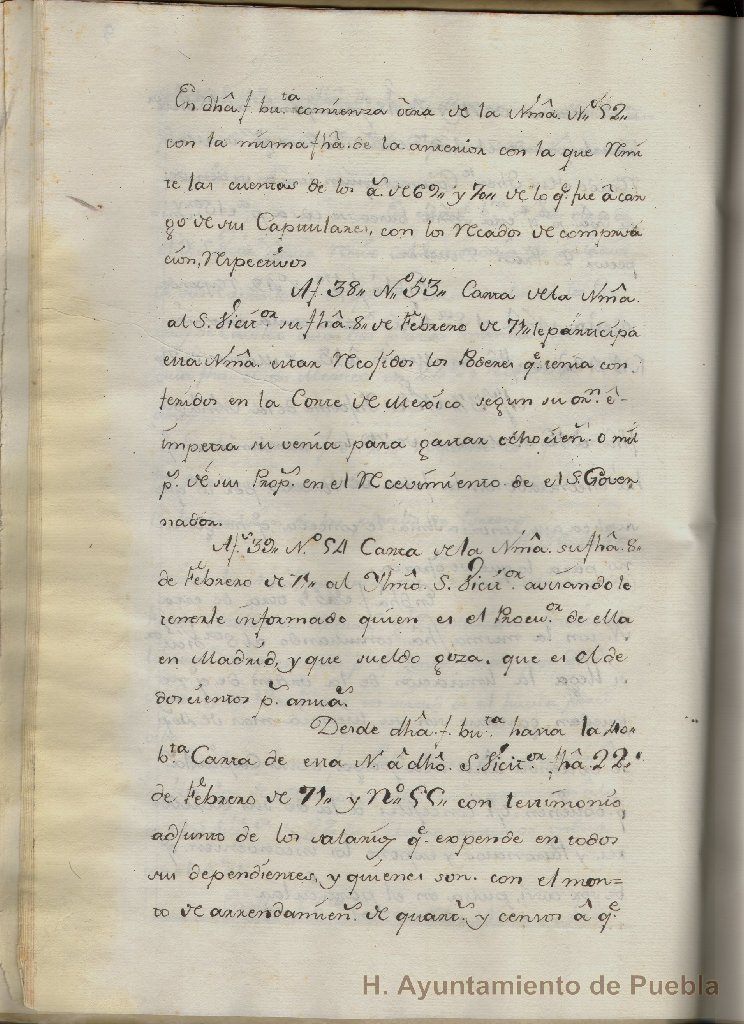 En dhâ. f. bu.ta comienza ôtra de la Nmâ. N.o 52,,
con la misma fhâ. de la anterior con la que Rmi
te las cuentas de los â.s de 69,, y 70,, de lo q.e fue â car
go de sus Capitulares, con los Recados de comprva
cion, Respectivos
A f. 38,, N.o 53,, Carta de la Nmâ.
al S. Vicit.or su fhâ. 8,, de Febrero de 71,, le participa
esta Nmâ. estar Recojidos los Poderes q.e tenia con
feridos en la Corte de Mexico segun su orn. ê
impetra su venia para gastar ochocien.s o mil
p.s de sus Prop.s en el Recevimiento de el S. Gover
nador.
A f.s 39,, N.o 54 Carta de la Nmâ. su fhâ. 8,,
de Febrero de 71,, al Yllmô. S. Vicit.or avisandole
tenerle informado quien es el Procu.or de ella
en Madrid, y que sueldo goza. que es el de
doscientos p.s anua.s
Desde dhâ. f. bu.ta hasta la 40,,
b.ta Carta de esta N. â dhô. S. Vicit.or fhâ. 22,,
de Febrero de 71,, y N.o 55,, con testimonio
adjunto de los salarios q.e expende en todos
sus dependientes, y quienes son. con el mon=
to de arrendamien.s de quart.s y censos â q.e
H. Ayuntamiento de Puebla